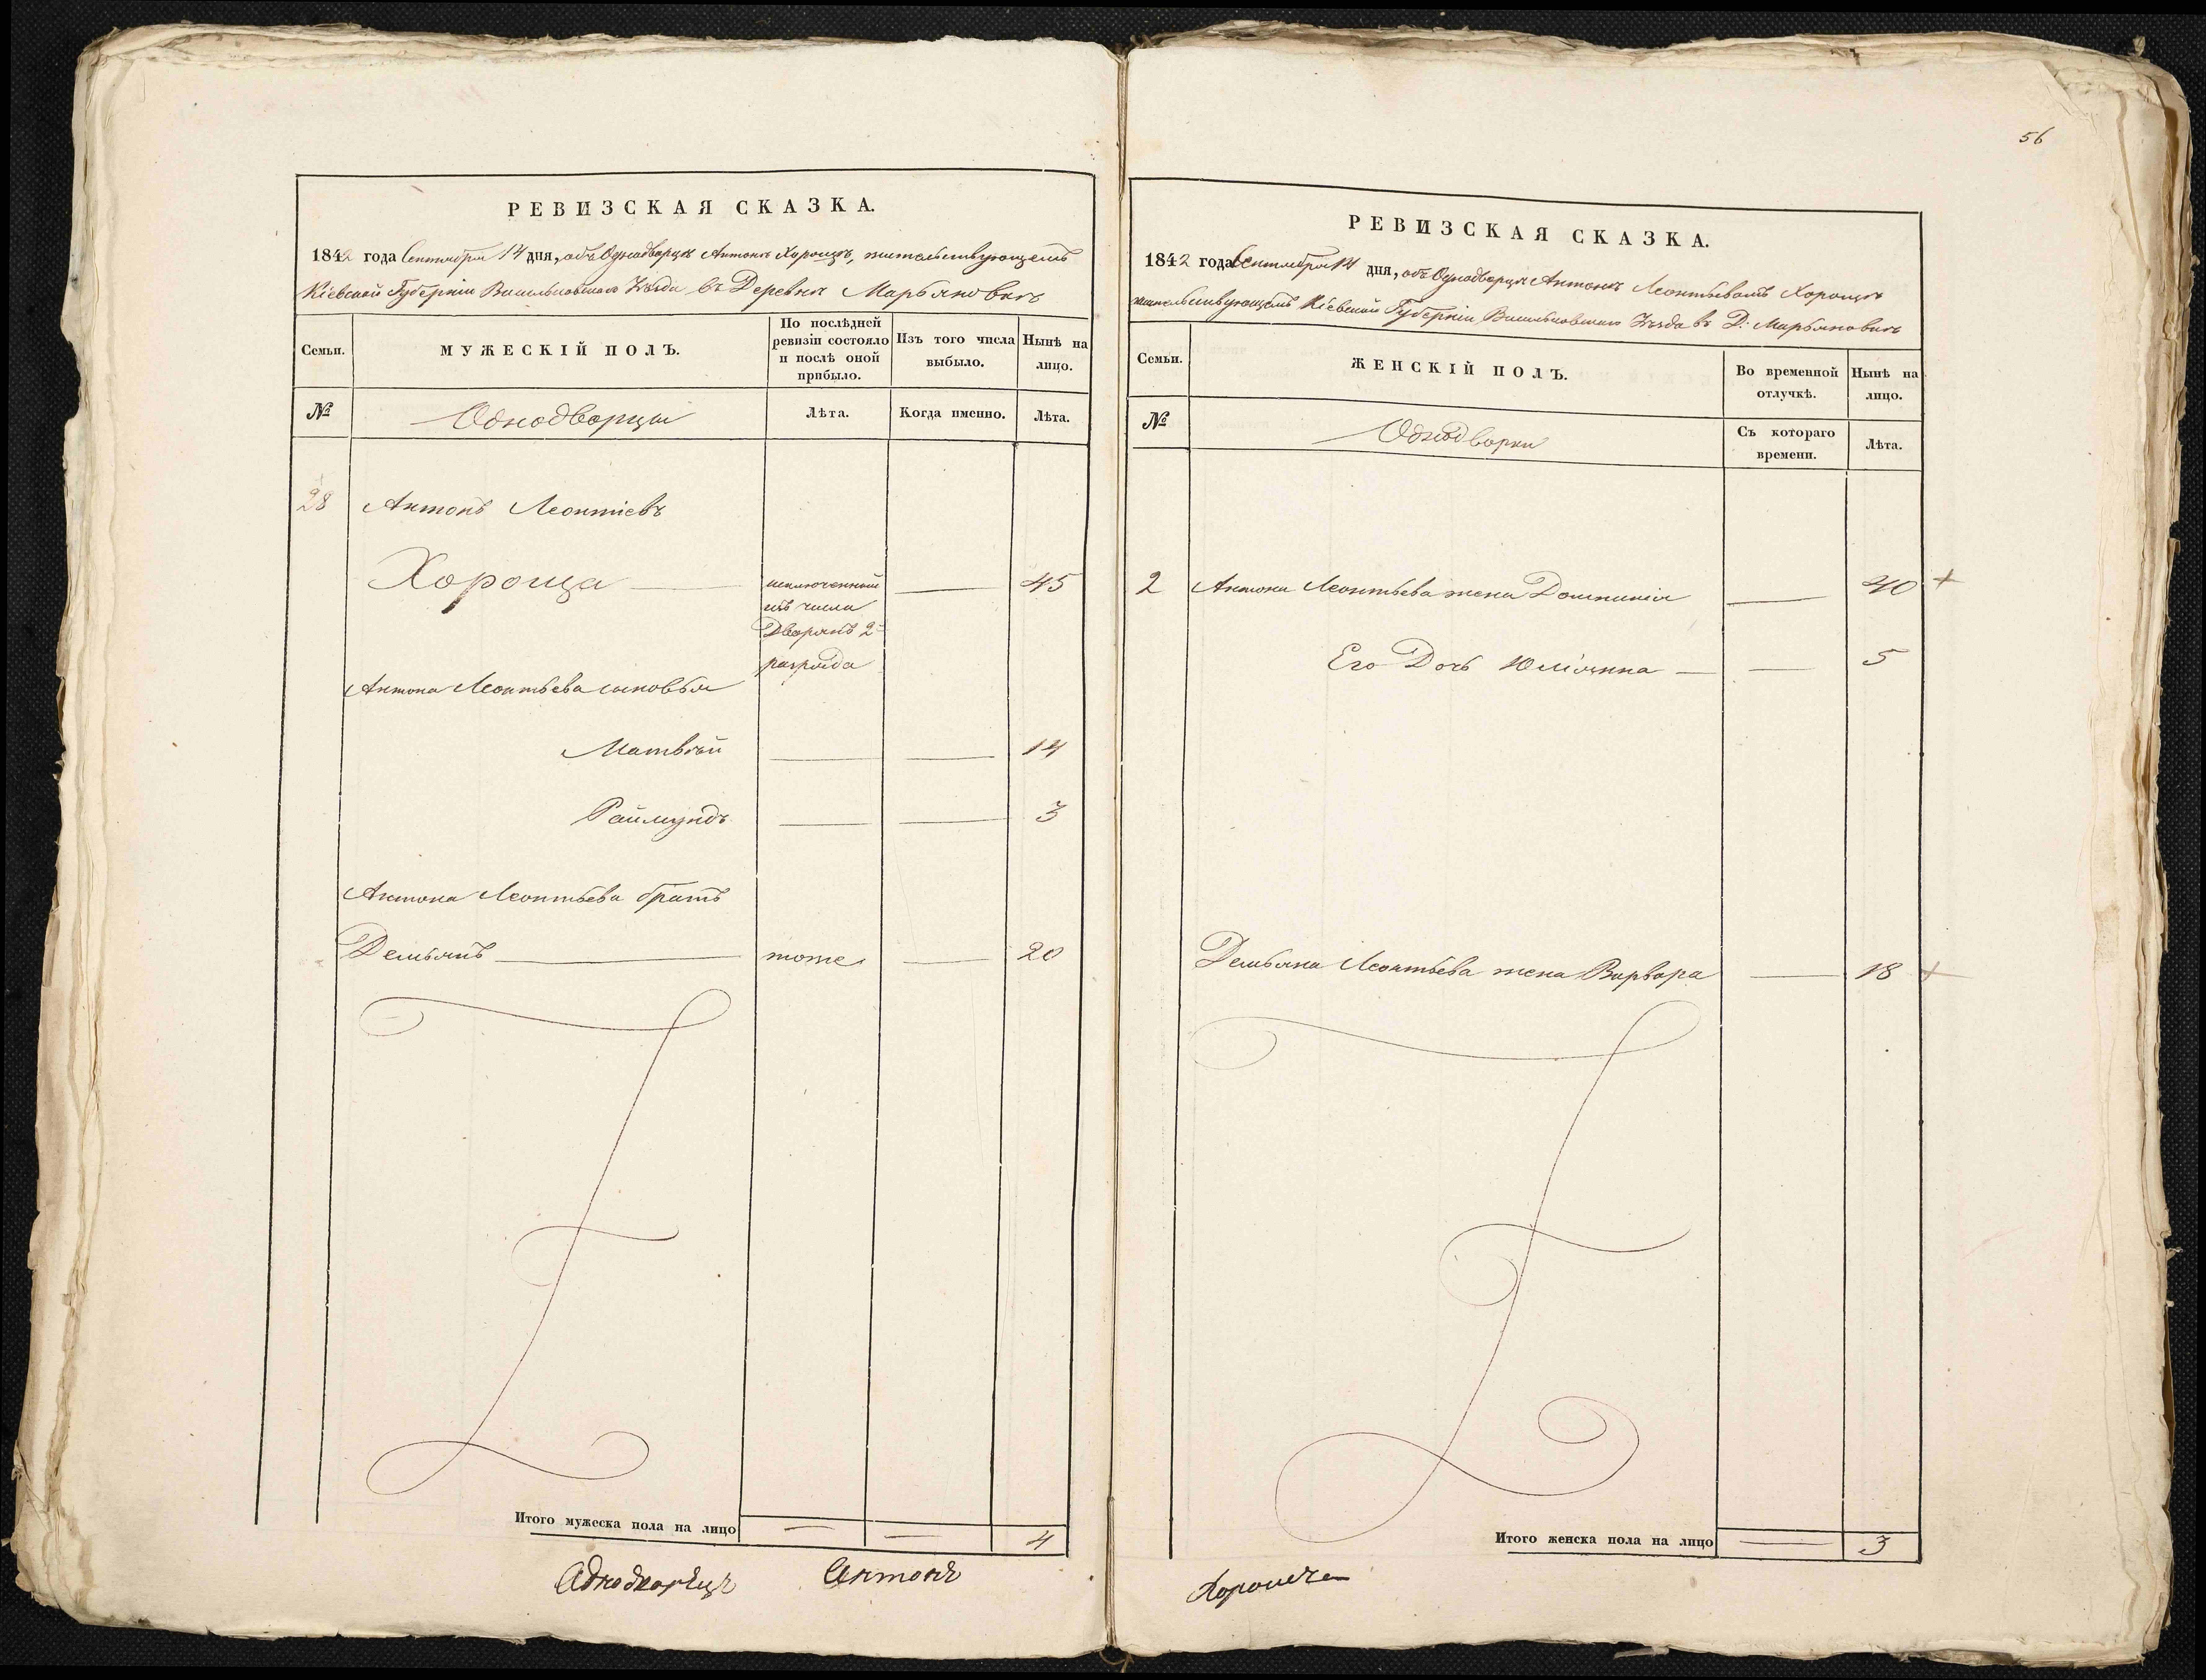 56
РЕВИЗСКАЯ СКАЗКА.
1842 года Сентября 14 дня, объ Однодворцѣ Антонѣ Хорощѣ, жительствующемъ
Кіевской Губерніи Васильковскаго Уѣзда въ Деревнѣ Марьяновкѣ
Семьи.
МУЖЕСКІЙ ПОЛЪ.
По послѣдней ревизіи состояло и послѣ оной прибыло.
Изъ того числа выбыло.
Нынѣ на лицо.
№
Однодворцы
Лѣта.
Когда именно.
Лѣта.
28 Антонъ Леонтіевъ
Хороща — исключенный — 45
изъ числа
Дворянъ 2
разряда
Антона Леонтьева сыновья
Матвѣй — — 14
Раймундъ — — 3
Антона Леонтьева братъ
Демьянъ — тоже — 20
Итого мужеска пола на лицо — — 4
Аднодворѣцъ Антонъ
РЕВИЗСКАЯ СКАЗКА.
1842 года Сентября 14 дня, объ Однодворцѣ Антонѣ Леонтьевомъ Хорощѣ
жительствующемъ Кіевской Губерніи Васильковскаго Уѣзда въ Д. Марьяновкѣ
Семьи.
ЖЕНСКІЙ ПОЛЪ.
Во временной отлучкѣ.
Нынѣ на лицо.
№
Однодворки
Съ котораго времени.
Лѣта.
2 Антона Леонтьева жена Домникія — 40 +
Его Дочь Юліянна — — 5
Демьяна Леонтьева жена Варвара — 18 +
Итого женска пола на лицо — 3